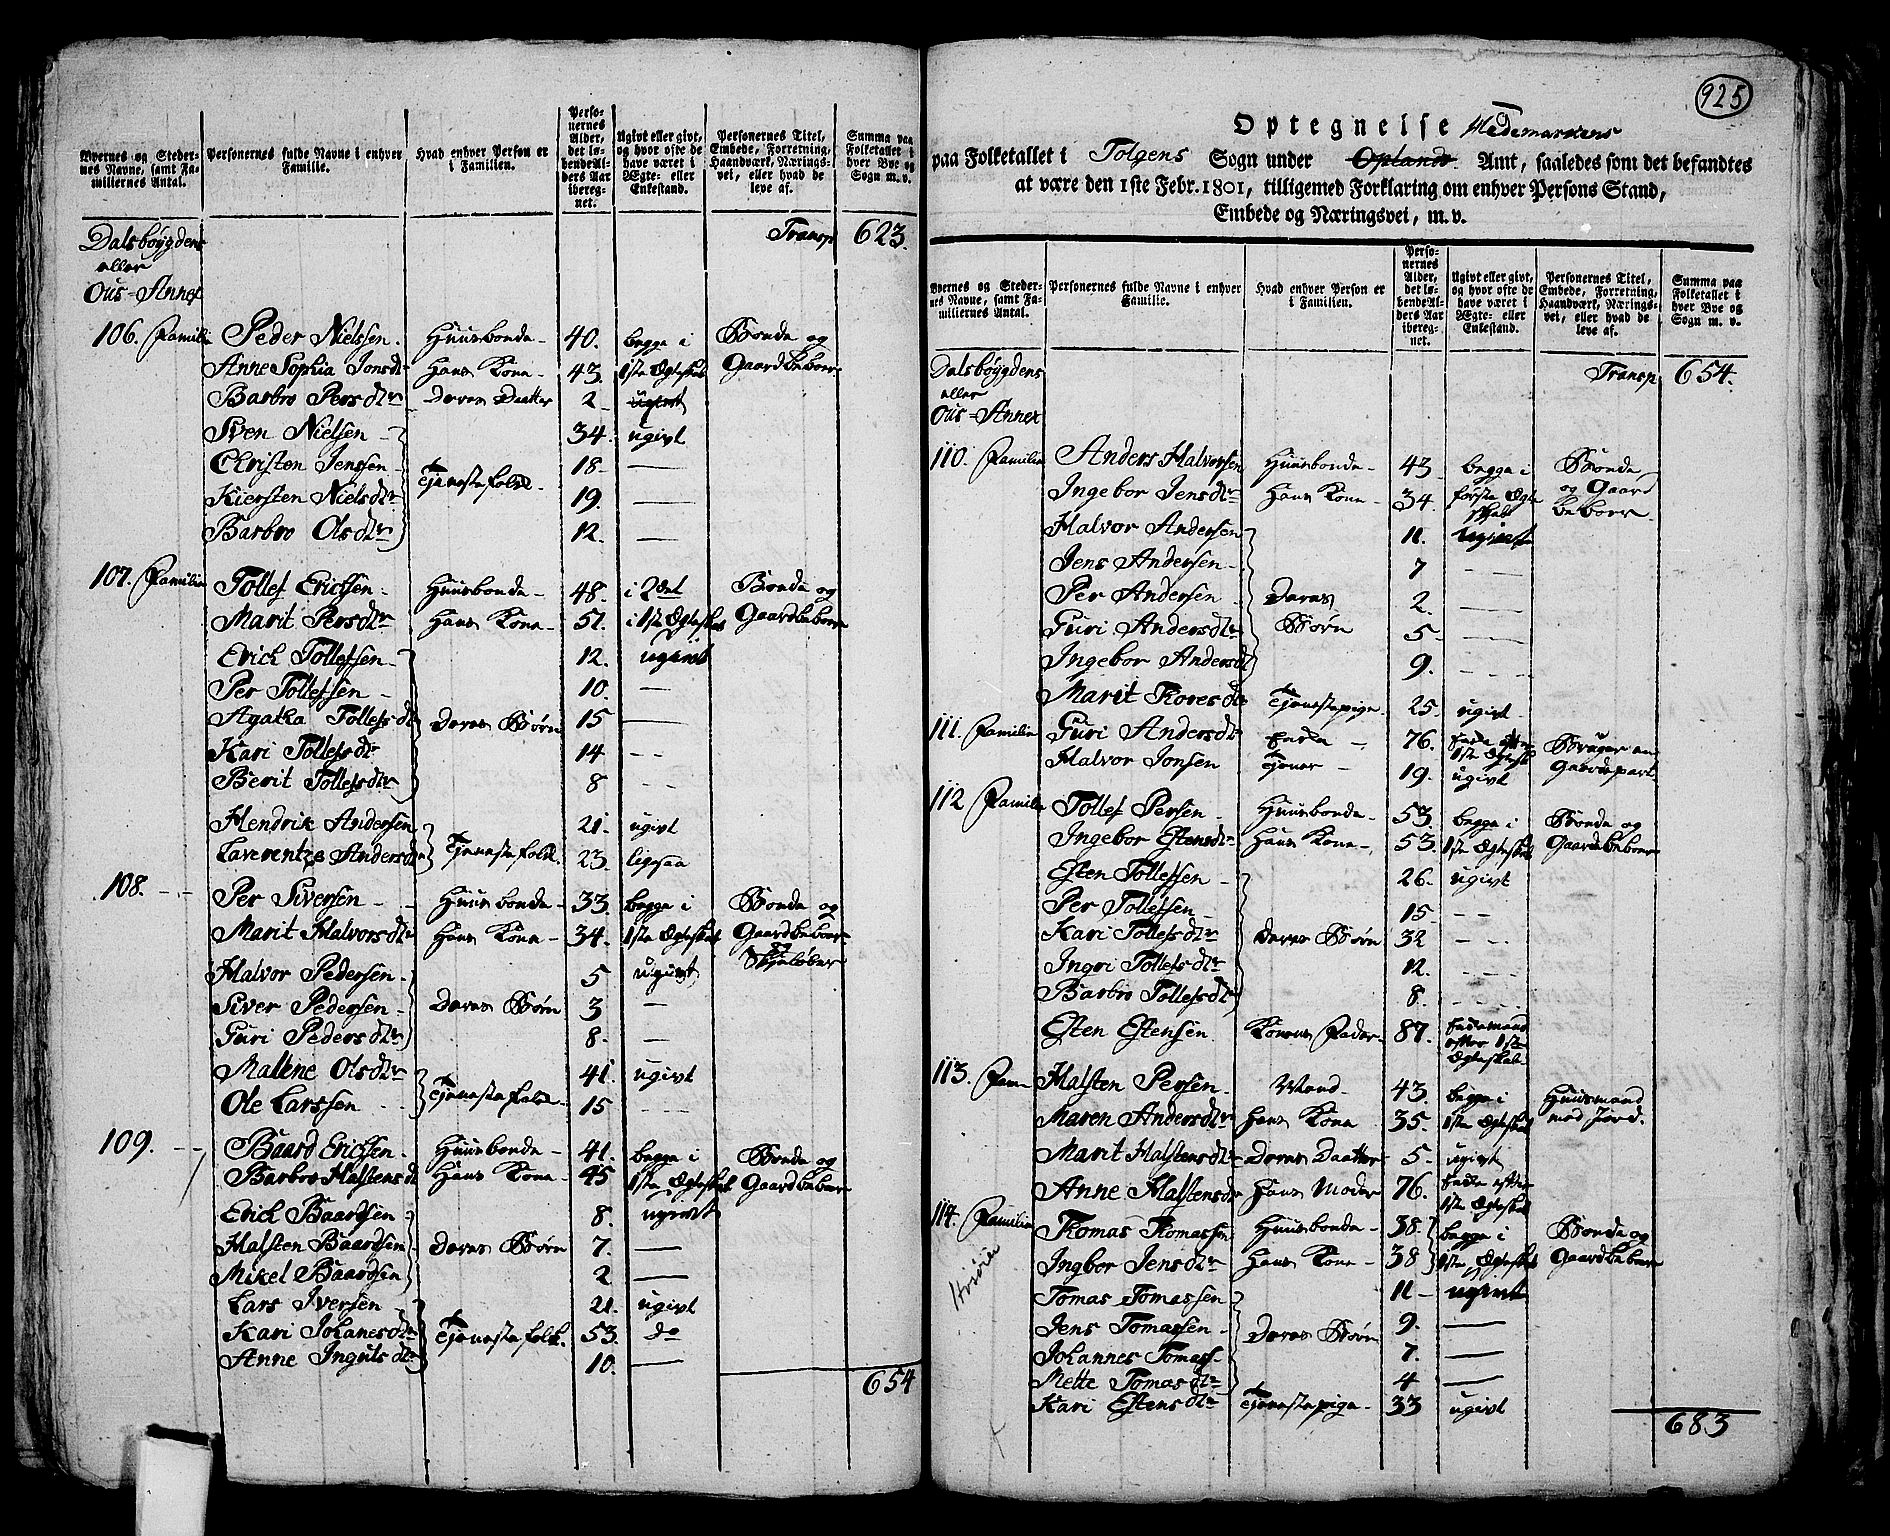 Byernes og Steder-
nes Navne, samt Fa-
miliernes Antal.
Personernes fulde Navne i enhver
Familie.
Hvad enhver Person er
i Familien.
Perso-
nernes
Alder,
det lø-
bende Al-
ders Aar
ibereg-
net.
Ugivt eller givt,
og hvor ofte de
have været i
Ægte- eller
Enkestand.
Personernes Titel,
Embede, Forretning,
Haandværk, Nærings-
vei, eller hvad de
leve af.
Summa paa
Folketallet i
hver Bye og
Sogn m. v.
Dalsbøygdens Transp 623.
eller
Ous-Annex
106. Familie Peder Nielssen Huusbonde 40. begge i Bonde og
Anne Sophia Jonsdr Hans Kone 43. 1ste Ægteskab Gaardbeboer
Barbro Persdtr Deres Daatter 2 ugivt
Sven Nielsen 34. ugivt
Christen Jenssen 18 —
Kiersten Nielsdtr Tjenestefolk 19. —
Barbro Olsdtr 12. —
107. Familie Tollef Ericssen Huusbonde 48. i 2det Bonde og
Marit Persdtr Hans Kone 51. i 1ste Ægteskab Gaardbeboer
Erich Tollefsen 12. ugivt
Per Tollefsen 10. —
Agatha Tollefsdr Deres Børn 15 —
Kari Tollefsdtr 14 —
Berit Tollefsdtr 8 —
Hendrik Andersen 21. ugivt
Laverentze Andersdr Tjenestefolk 23. ligesaa
108. Per Siversen Huusbonde 33. begge i Bonde og
Marit Halvorsdtr Hans Kone 34. 1ste Ægteskab Gaardbeboer
Skieløber
Halvor Pedersen 5 ugivt
Siver Pedersen Deres Børn 3 —
Guri Pedersdtr 8. —
Malene Olsdtr 41. ugivt
Ole Larssen Tjenestefolk 15 —
109. Baard Ericssen Huusbonde 41. begge i Bonde og
Barbro Halstensdr Hans Kone 45 1ste Ægteskab Gaardbeboer
Erich Baardsen 8. ugivt
Halsten Baardsen Deres Børn 7. —
Mikel Baardsen 2 —
Lars Iversen 21. ugivt
Kari Johanesdtr Tjenestefolk 53. do
Anne Ingulsdtr 10. —
654
925
Optegnelse Hedemarkens
paa Folketallet i Tolgens Sogn under Oplands Amt, saaledes som det befandtes
at være den 1ste Febr. 1801, tilligemed Forklaring om enhver Persons Stand,
Embede og Næringsvei, m. v.
Byernes og Steder-
nes Navne, samt Fa-
miliernes Antal.
Personernes fulde Navne i enhver
Familie.
Hvad enhver Person er
i Familien.
Perso-
nernes
Alder,
det lø-
bende Al-
ders Aar
ibereg-
net.
Ugivt eller givt,
og hvor ofte de
have været i
Ægte- eller
Enkestand.
Personernes Titel,
Embede, Forretning,
Haandværk, Nærings-
vei, eller hvad de
leve af.
Summa paa
Folketallet i
hver Bye og
Sogn m. v.
Dalsbøygdens Transp 654.
eller
Ous-Annex
110. Familie Anders Halvorsen Huusbonde 43. begge i Bonde
Ingebor Jensdtr Hans Kone 34. første Ægte og Gaard
skab beboer
Halvor Andersen 11. ugivt
Jens Andersen 7 —
Per Andersen Deres 2. —
Guri Andersdtr Børn 5. —
Ingebor Andersdr 9. —
Marit Thoresdr Tjenestepige 25. ugivt
111. Familie Guri Andersdtr Enke 76. Enke efter Bruger en
1ste Ægtesk
Halvor Jonsen Tjener 19. ugivt Gaardepart.
112 Familie Tollef Persen Huusbonde 53. begge i Bonde og
Ingebor Estensdtr Hans Kone 53. 1ste Ægteskab Gaardbeboer
Esten Tollefsen 26. ugivt
Per Tollefsen 15 —
Kari Tollefsdtr Deres Børn 32 —
Ingri Tollefsdtr 12. —
Barbro Tollefsdtr 8. —
Esten Estensen Konens Fader 87. Enkemand
efter 1ste
Ægteskab
113. Fam Halsten Persen Mand 43. begge i Huusmand
Maren Andersdtr Hans Kone 35. 1ste Ægteskab med Jord.
Marit Halstensdtr Deres Daatter 5. ugivt
Anne Halstensdr Hans Moder 76. Enke efter
1ste Ægteskab
114. Familie Thomas Thomassen Huusbonde 38. begge i Bonde og
Ingbor Jensdtr Hans Kone 38 1ste Ægteskab Gaardbeboer
Tomas Tomassen 11 ugivt
Jens Tomassen Deres Børn 9. —
Johannes Tomass 7. —
Mette Tomasdtr 4 —
Kari Estensdtr Tjenestepige 33 ugivt
683